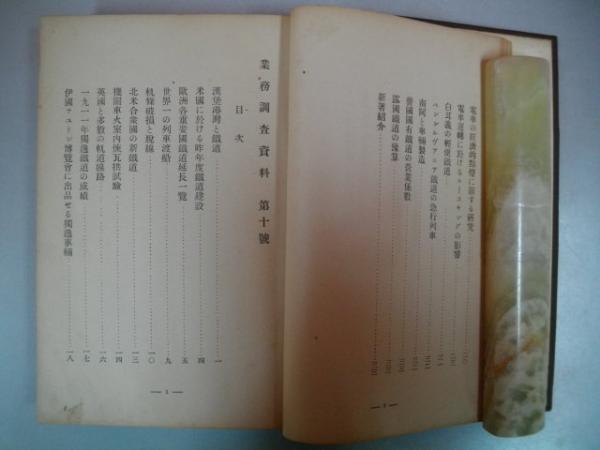 電車の經濟的點燈に關する研究
電車運轉に於ける
白耳義の輕便鐵道
ペンシルヴァニア鐵道の急行列車
南阿と車輛製造
普國國有鐵道の營業係數
露國鐵道の豫算
新著紹介
業務調査資料 第十號
目次
漢堡港灣と鐵道 一
米國に於ける昨年度鐵道建設 四
歐洲各重要國鐵道延長一覽 五
世界一の列車渡船 九
軌條破損と脫線 一〇
北米合衆國の新鐵道 一三
機關車火室內煉瓦拱試驗 一四
英國と多數の軌道 一六
一九一一年獨逸鐵道の成績 一七
伊國チューリン博覽會に出品せる獨逸車輛 一八
— 1 —